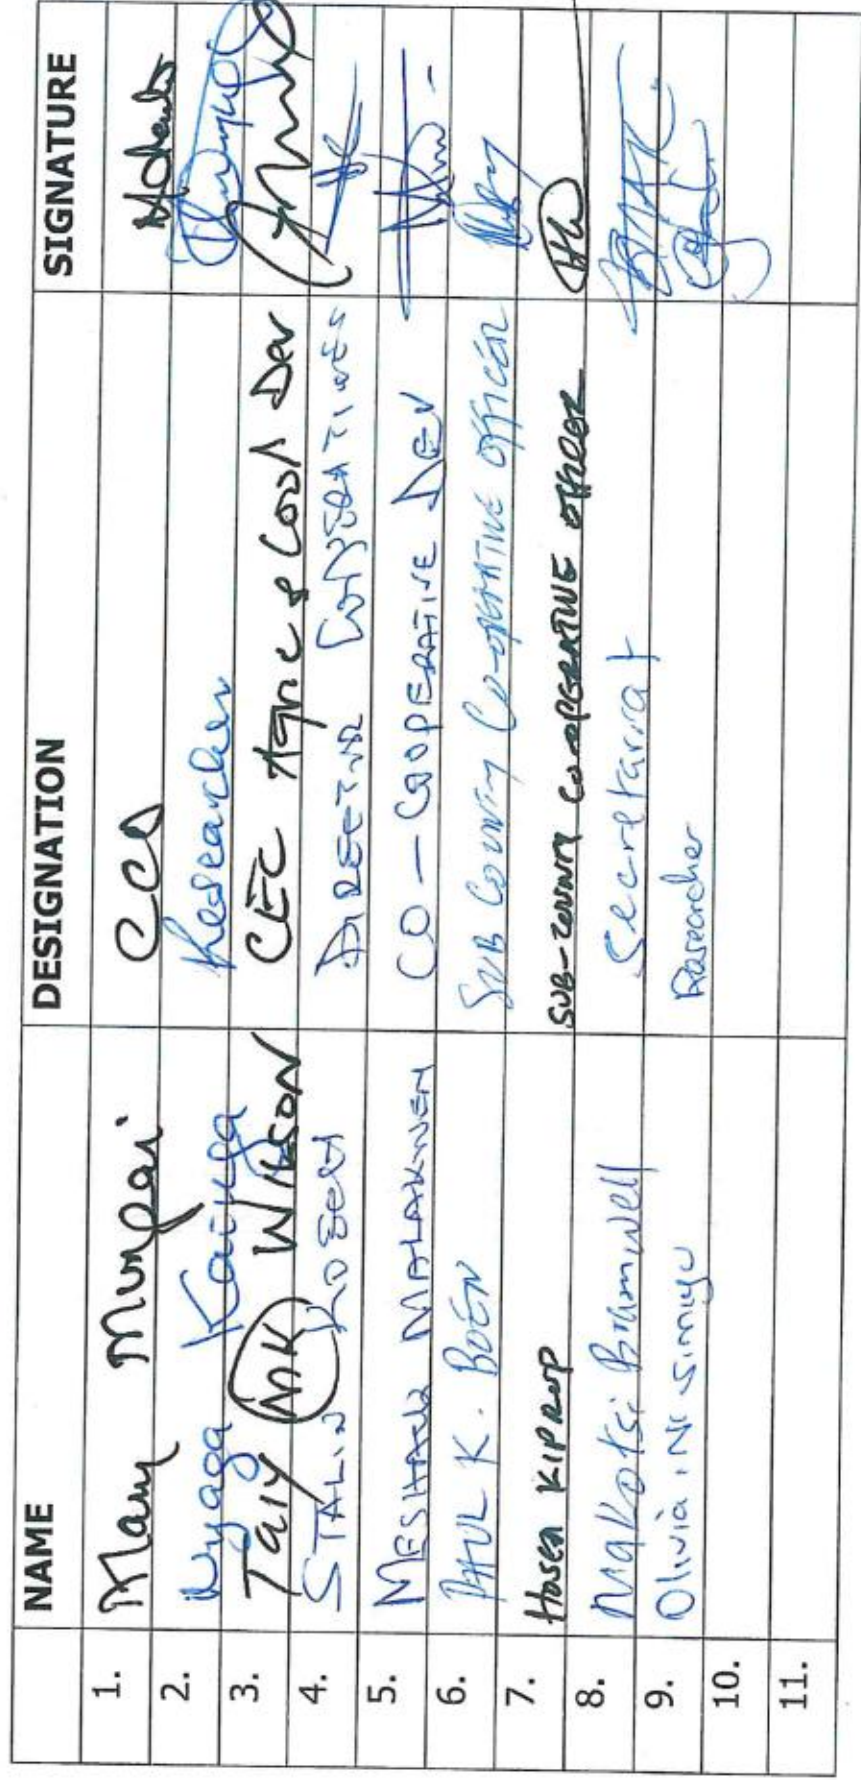 NAME DESIGNATION SIGNATURE
1. Mary Mungai CCO
2. Nyaga Kaiuga Researcher
3. Taiy MK WILSON CEC Agric & Coop Dev
4. STALIN KOSECH DIRECTOR COOPERATIVES
5. MESHACK MALAKWEN CO-COOPERATIVE DEV
6. PAUL K. BOEN SUB COUNTY CO-OPERATIVE OFFICER
7. Hosea KIPROP SUB-COUNTY CO-OPERATIVE OFFICER
8. Makotsi Bramwell Secretariat
9. Olivia N. Simiyu Researcher
10.
11.